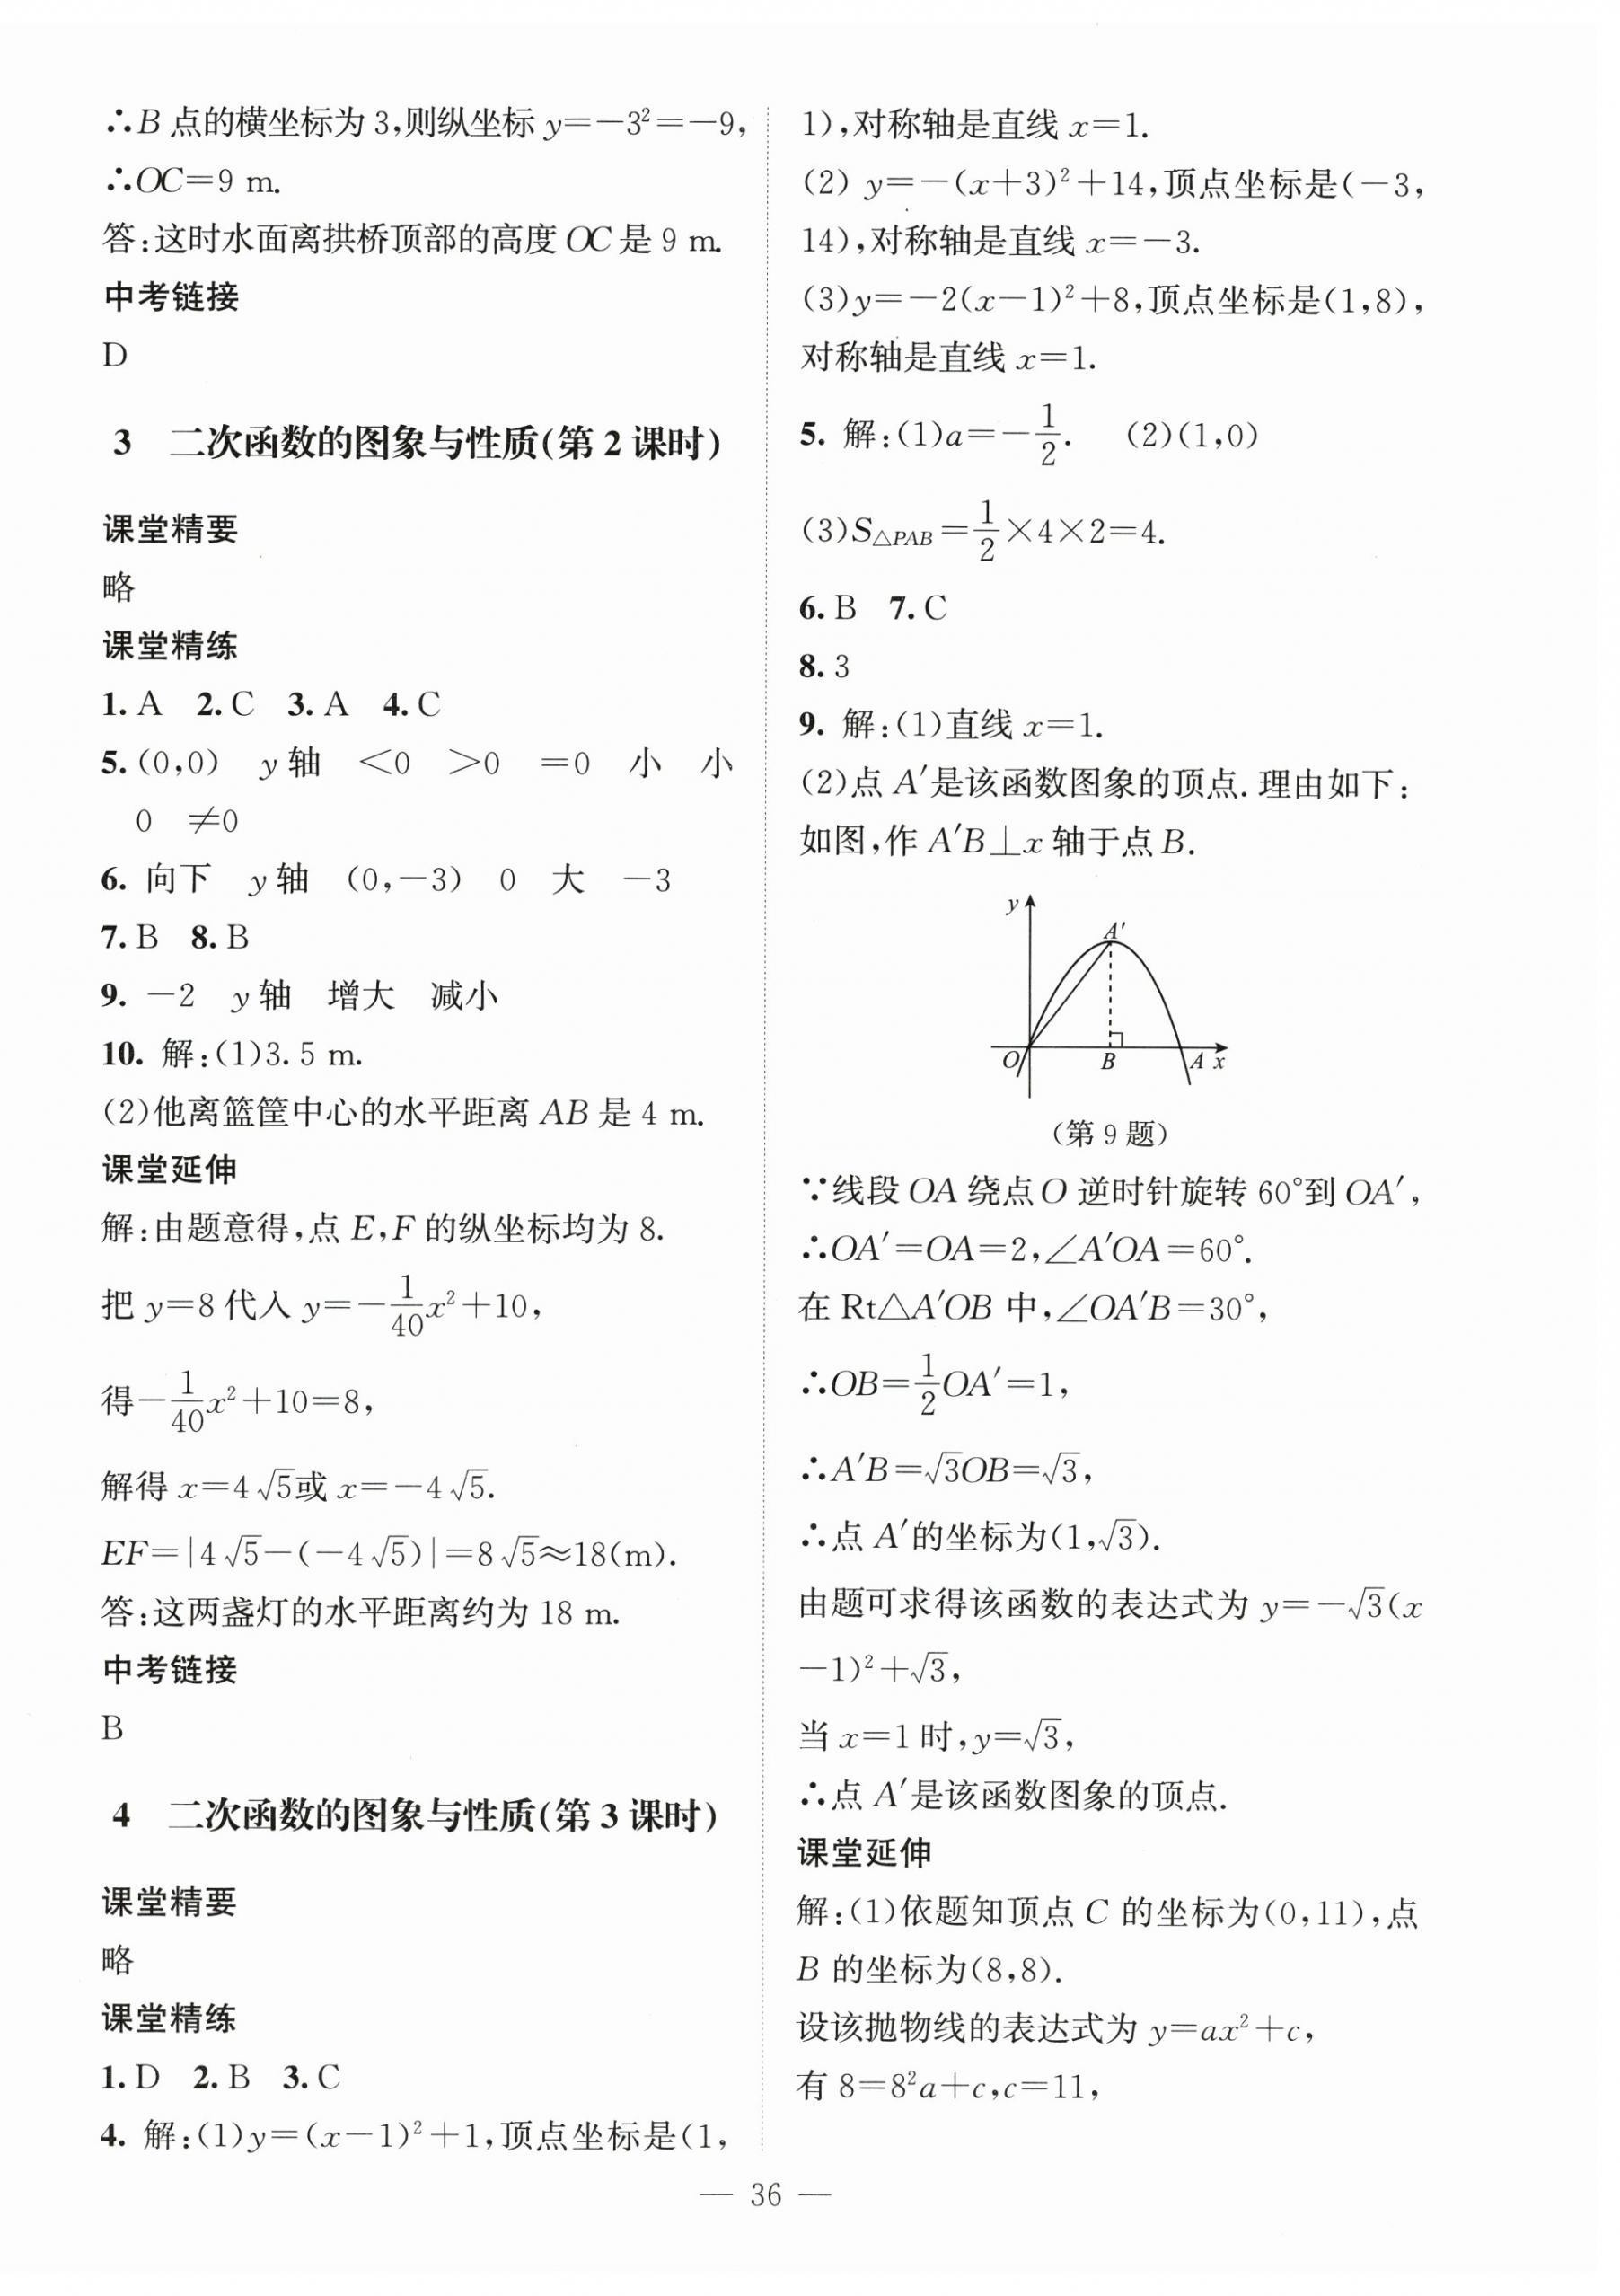 ∴B 点的横坐标为 3,则纵坐标 y=-3²=-9,
∴OC=9 m.
答:这时水面离拱桥顶部的高度 OC 是 9 m.
中考链接
D
3 二次函数的图象与性质(第 2 课时)
课堂精要
略
课堂精练
1. A 2. C 3. A 4. C
5. (0,0) y 轴 <0 >0 =0 小 小
0 ≠0
6. 向下 y 轴 (0,-3) 0 大 -3
7. B 8. B
9. -2 y 轴 增大 减小
10. 解:(1)3.5 m.
(2)他离篮筐中心的水平距离 AB 是 4 m.
课堂延伸
解:由题意得,点 E,F 的纵坐标均为 8.
把 y=8 代入 y=-1/40x²+10,
得-1/40x²+10=8,
解得 x=4√5或 x=-4√5.
EF=|4√5-(-4√5)|=8√5≈18(m).
答:这两盏灯的水平距离约为 18 m.
中考链接
B
4 二次函数的图象与性质(第 3 课时)
课堂精要
略
课堂精练
1. D 2. B 3. C
4. 解:(1)y=(x-1)²+1,顶点坐标是(1,
1),对称轴是直线 x=1.
(2) y=-(x+3)²+14,顶点坐标是(-3,
14),对称轴是直线 x=-3.
(3)y=-2(x-1)²+8,顶点坐标是(1,8),
对称轴是直线 x=1.
5. 解:(1)a=-1/2. (2)(1,0)
(3)S△PAB=1/2×4×2=4.
6. B 7. C
8. 3
9. 解:(1)直线 x=1.
(2)点 A′是该函数图象的顶点. 理由如下:
如图,作 A′B⊥x 轴于点 B.
y
A′
O B A x
(第 9 题)
∵线段 OA 绕点 O 逆时针旋转 60°到 OA′,
∴OA′=OA=2,∠A′OA=60°.
在 Rt△A′OB 中,∠OA′B=30°,
∴OB=1/2OA′=1,
∴A′B=√3OB=√3,
∴点 A′的坐标为(1,√3).
由题可求得该函数的表达式为 y=-√3(x
-1)²+√3,
当 x=1 时,y=√3,
∴点 A′是该函数图象的顶点.
课堂延伸
解:(1)依题知顶点 C 的坐标为(0,11),点
B 的坐标为(8,8).
设该抛物线的表达式为 y=ax²+c,
有 8=8²a+c,c=11,
— 36 —